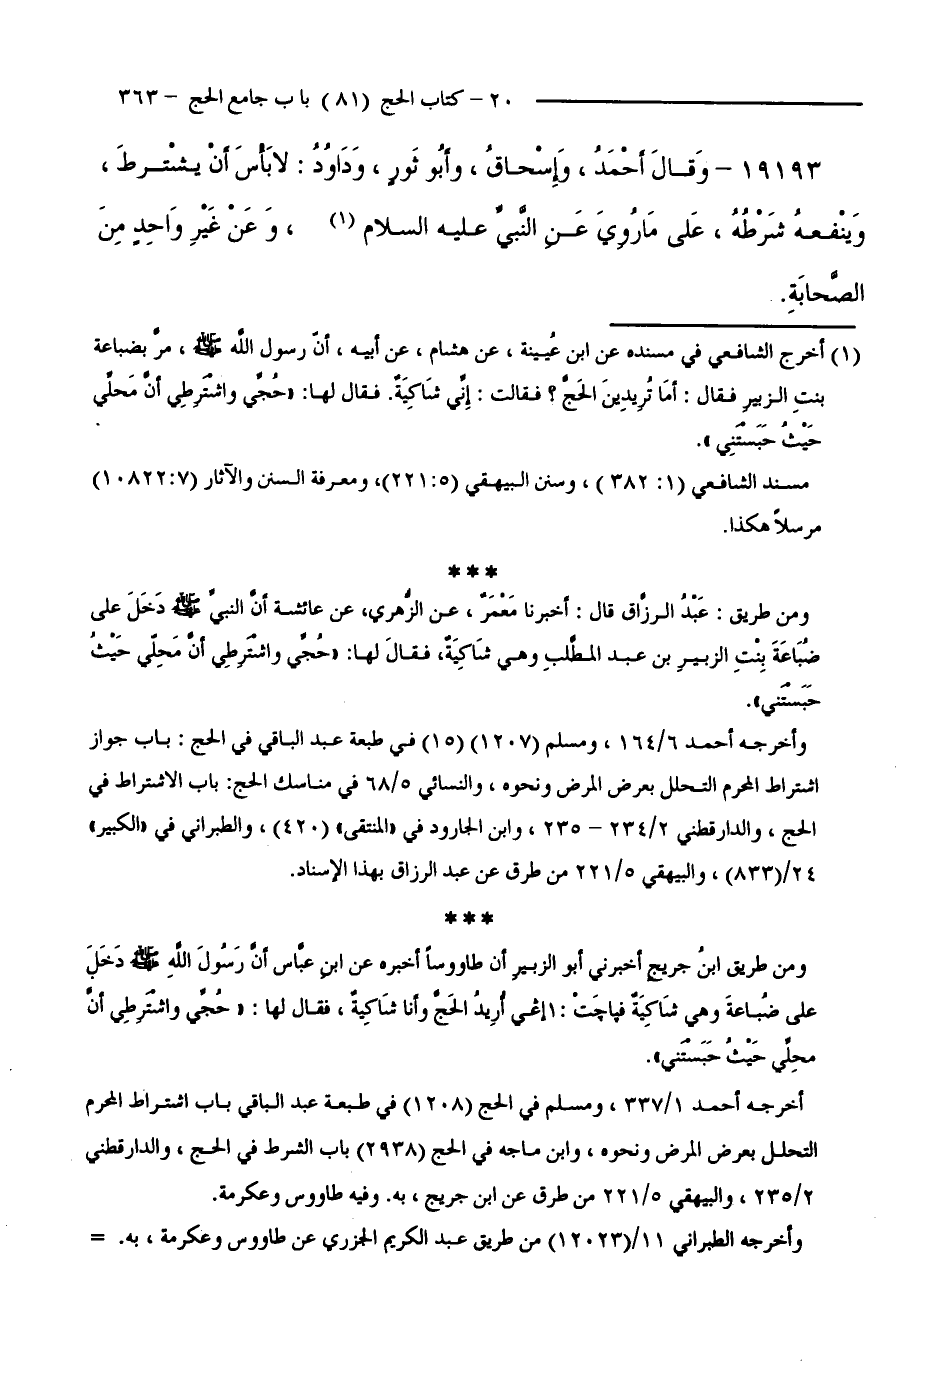 ٢٠ – كتاب الحج (٨١) باب جامع الحج – ٣٦٣
١٩١٩٣ – وَقَالَ أَحْمَدُ ، وَإِسْحَاقُ ، وأَبُو ثَورٍ ، وَدَاوُدُ : لابَأْسَ أَنْ يشْترطَ ،
وَيَنْفعهُ شَرْطُهُ ، عَلى مَارُوِيَ عَنِ النَّبيِّ عليه السلام (١) ، وَ عَنْ غَيْرِ وَاحِدٍ مِنَ
الصَّحابَةِ.
(١) أخرج الشافعي في مسنده عن ابن عُيينة ، عن هشام ، عن أبيه ، أنّ رسول اللَّه ﷺ ، مرَّ بضباعة
بنتِ الزبيرِ فقال : أمَا تُرِيدِينَ الحَجَّ ؟ فقالت : إنِّي شَاكَيَةٌ. فقال لها: «حُجِّي واشْتَرِطِي أنَّ مَحلَّي
حَيْثُ حَبَسْتَنِي ».
مسند الشافعي (١ : ٣٨٢ ) ، وسنن البيهقي (٥ : ٢٢١)، ومعرفة السنن والآثار (٧ : ١٠٨٢٢)
مرسلاً هكذا.
***
ومن طريق : عَبْدُ الرزَّاق قال : أخبرنا مَعْمَرٌ ، عن الزُّهري، عن عائشة أنَّ النبيَّ ﷺ دَخَلَ على
ضُبَاعَةَ بِنْتِ الزبيرِ بن عبد المطَّلبِ وهي شَاكِيَةٌ، فقالَ لها: «حُجِّي واشْتَرطِي أنَّ مَحلّي حَيْثُ
حَبَسْتَني».
وأخرجه أحمد ١٦٤/٦ ، ومسلم (١٢٠٧) (١٥) في طبعة عبد الباقي في الحج : باب جواز
اشتراط المحرم التحلل بعرض المرض ونحوه ، والنسائي ٦٨/٥ في مناسك الحج: باب الاشتراط في
الحج ، والدارقطني ٢٣٤/٢ – ٢٣٥ ، وابن الجارود في «المنتقى» (٤٢٠) ، والطبراني في «الكبير»
٢٤/(٨٣٣) ، والبيهقي ٢٢١/٥ من طرق عن عبد الرزاق بهذا الإسناد.
***
ومن طريق ابنُ جريجٍ أخبرني أبو الزبيرِ أن طاووساً أخبره عن ابنِ عبَّاس أنَّ رَسُولَ اللَّهِ ﷺ دَخَلَ
على ضُبَاعةَ وهي شَاكَيَةٌ : أُرِيدُ الحَجَّ وأنا شَاكيَةٌ ، فقال لها : « حُجِّي واشْتَرِطِي أنَّ
محلَّي حَيْثُ حَبَسْتَني».
أخرجه أحمد ٣٣٧/١ ، ومسلم في الحج (١٢٠٨) في طبعة عبد الباقي باب اشتراط المحرم
التحلل بعرض المرض ونحوه ، وابن ماجه في الحج (٢٩٣٨) باب الشرط في الحج ، والدارقطني
٢٣٥/٢ ، والبيهقي ٢٢١/٥ من طرق عن ابن جريج ، به. وفيه طاووس وعكرمة.
وأخرجه الطبراني ١١/(١٢٠٢٣) من طريق عبد الكريم الجزري عن طاووس وعكرمة ، به. =